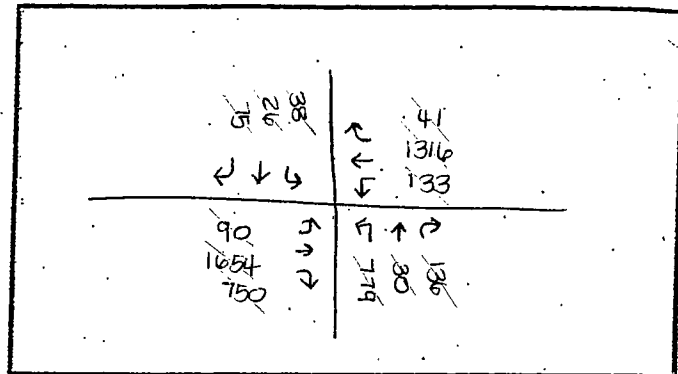 75 26 38
41
1316
133
90
1654
750
779 30 136